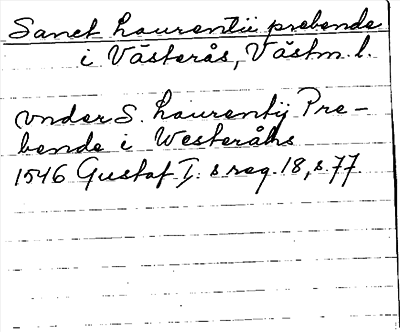 Sanct Laurentii prebende
i Västerås, Västm. l.
vnder S. Laurentij Pre-
bende i Westeråhs
1546 Gustaf I:s reg. 18, s. 77.